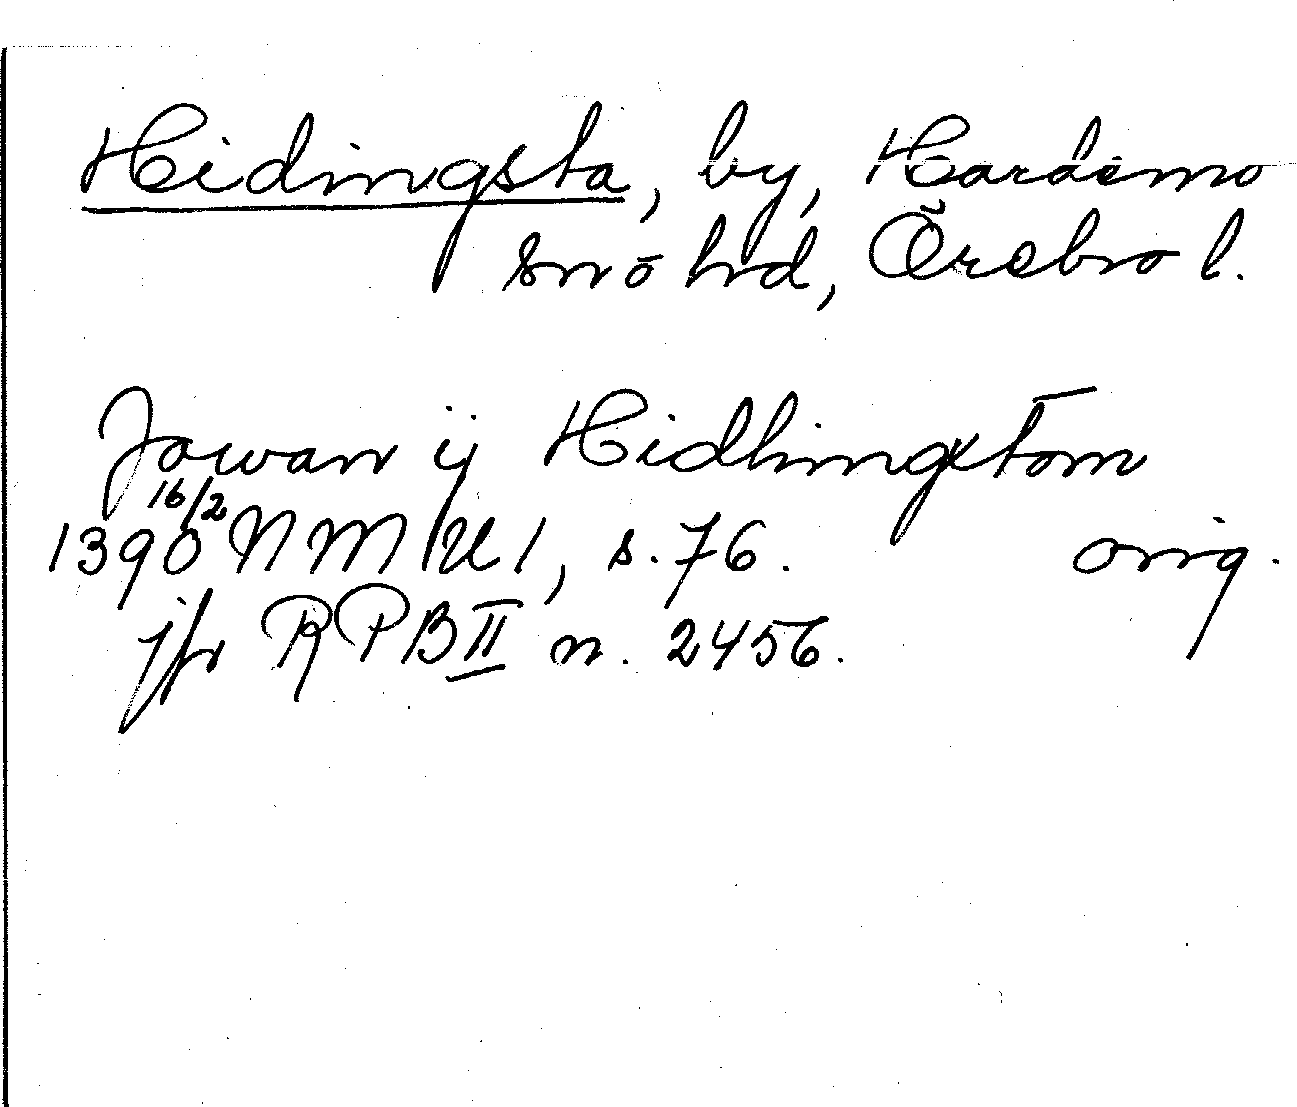 Hidingsta, by, Hardemo
sn o hd, Örebro l.
Jowan ij Hidhingxtom
16/2
1390 NMU 1, s. 76. orig.
jfr RPB II n. 2456.